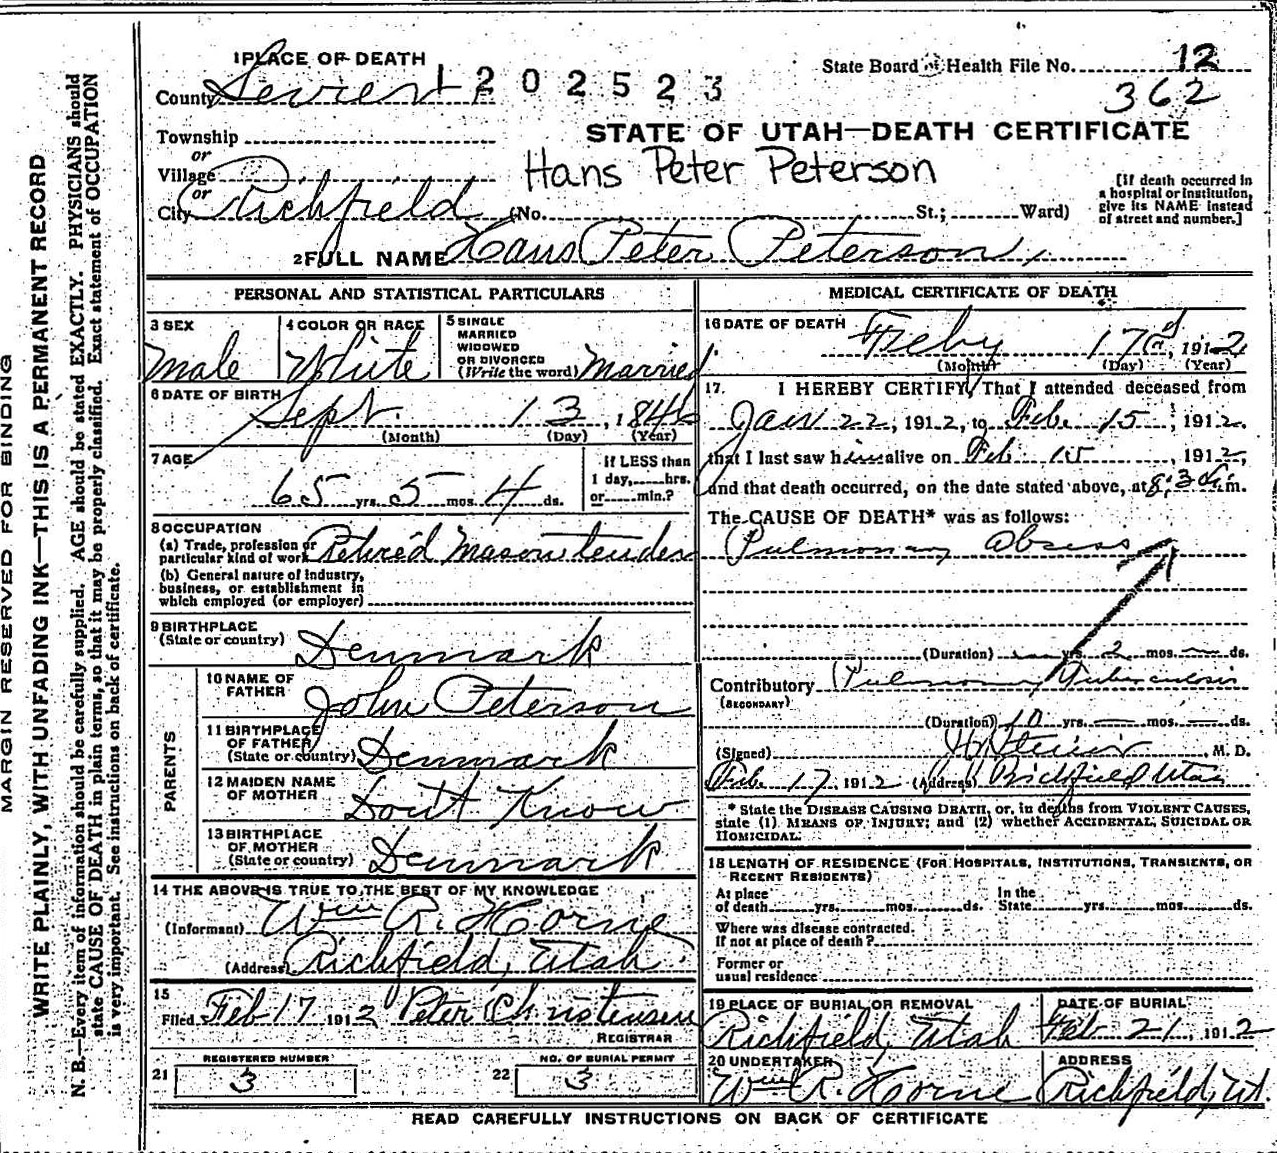 MARGIN RESERVED FOR BINDING
WRITE PLAINLY, WITH UNFADING INK—THIS IS A PERMANENT RECORD
N. B.—Every item of information should be carefully supplied. AGE should be stated EXACTLY. PHYSICIANS should
state CAUSE OF DEATH in plain terms, so that it may be properly classified. Exact statement of OCCUPATION
is very important. See instructions on back of certificate.
1 PLACE OF DEATH
County Sevier
1202523
State Board of Health File No. 12
362
Township
STATE OF UTAH—DEATH CERTIFICATE
or
Village
Hans Peter Peterson
or
City Richfield (No. St.; Ward)
[If death occurred in
a hospital or institution,
give its NAME instead
of street and number.]
2 FULL NAME Hans Peter Peterson
PERSONAL AND STATISTICAL PARTICULARS
3 SEX
Male
4 COLOR OR RACE
White
5 SINGLE
MARRIED
WIDOWED
OR DIVORCED
(Write the word) Married
6 DATE OF BIRTH
Sept. 13, 1846
(Month) (Day) (Year)
7 AGE
65 yrs. 5 mos. 4 ds.
If LESS than
1 day, hrs.
or min.?
8 OCCUPATION
(a) Trade, profession or
particular kind of work Retired Mason tender
(b) General nature of industry,
business, or establishment in
which employed (or employer)
9 BIRTHPLACE
(State or country) Denmark
PARENTS
10 NAME OF
FATHER John Peterson
11 BIRTHPLACE
OF FATHER
(State or country) Denmark
12 MAIDEN NAME
OF MOTHER Dont Know
13 BIRTHPLACE
OF MOTHER
(State or country) Denmark
14 THE ABOVE IS TRUE TO THE BEST OF MY KNOWLEDGE
(Informant) Wm R. Horne
(Address) Richfield, Utah
15
Filed Feb 17 1912 Peter Christensen
REGISTRAR
21 REGISTERED NUMBER
3
22 NO. OF BURIAL PERMIT
3
MEDICAL CERTIFICATE OF DEATH
16 DATE OF DEATH
Feby 17, 1912
(Month) (Day) (Year)
17. I HEREBY CERTIFY, That I attended deceased from
Jan 22, 1912, to Feb. 15, 1912.
that I last saw him alive on Feb 15, 1912,
and that death occurred, on the date stated above, at 8:30 m.
The CAUSE OF DEATH* was as follows:
Pulmonary Abscess
(Duration) yrs. 2 mos. ds.
Contributory Pulmonary Tuberculosis
(SECONDARY)
(Duration) 10 yrs. mos. ds.
(Signed) M. D.
Feb. 17, 1912 (Address) Richfield Utah
* State the DISEASE CAUSING DEATH, or, in deaths from VIOLENT CAUSES,
state (1) MEANS OF INJURY; and (2) whether ACCIDENTAL, SUICIDAL OR
HOMICIDAL.
18 LENGTH OF RESIDENCE (FOR HOSPITALS, INSTITUTIONS, TRANSIENTS, OR
RECENT RESIDENTS)
At place
of death yrs. mos. ds.
In the
State yrs. mos. ds.
Where was disease contracted.
If not at place of death?
Former or
usual residence
19 PLACE OF BURIAL OR REMOVAL
Richfield, Utah
DATE OF BURIAL
Feb 21, 1912
20 UNDERTAKER
Wm R. Horne
ADDRESS
Richfield, Ut.
READ CAREFULLY INSTRUCTIONS ON BACK OF CERTIFICATE